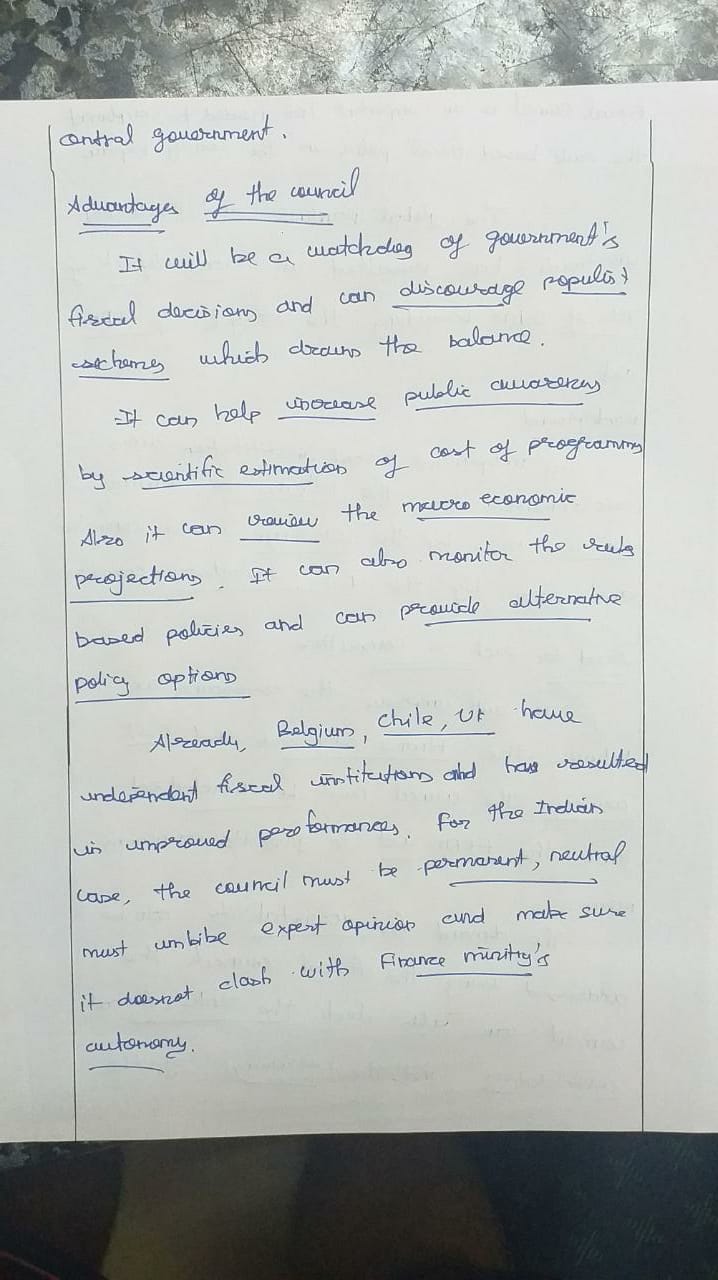 central government.
Advantages of the council
It will be a watchdog of government's
fiscal decisions and can discourage populist
schemes which drains the balance.
It can help increase public awareness
by scientific estimation of cost of programms
Also it can review the macro economic
projections. It can also monitor the rule
based policies and can provide alternative
policy options
Already, Belgium, Chile, UK have
independent fiscal institutions and has resulted
in improved performances. For the Indian
case, the council must be permanent, neutral
must imbibe expert opinion and make sure
it doesnot clash with Finance minitry's
autonomy.